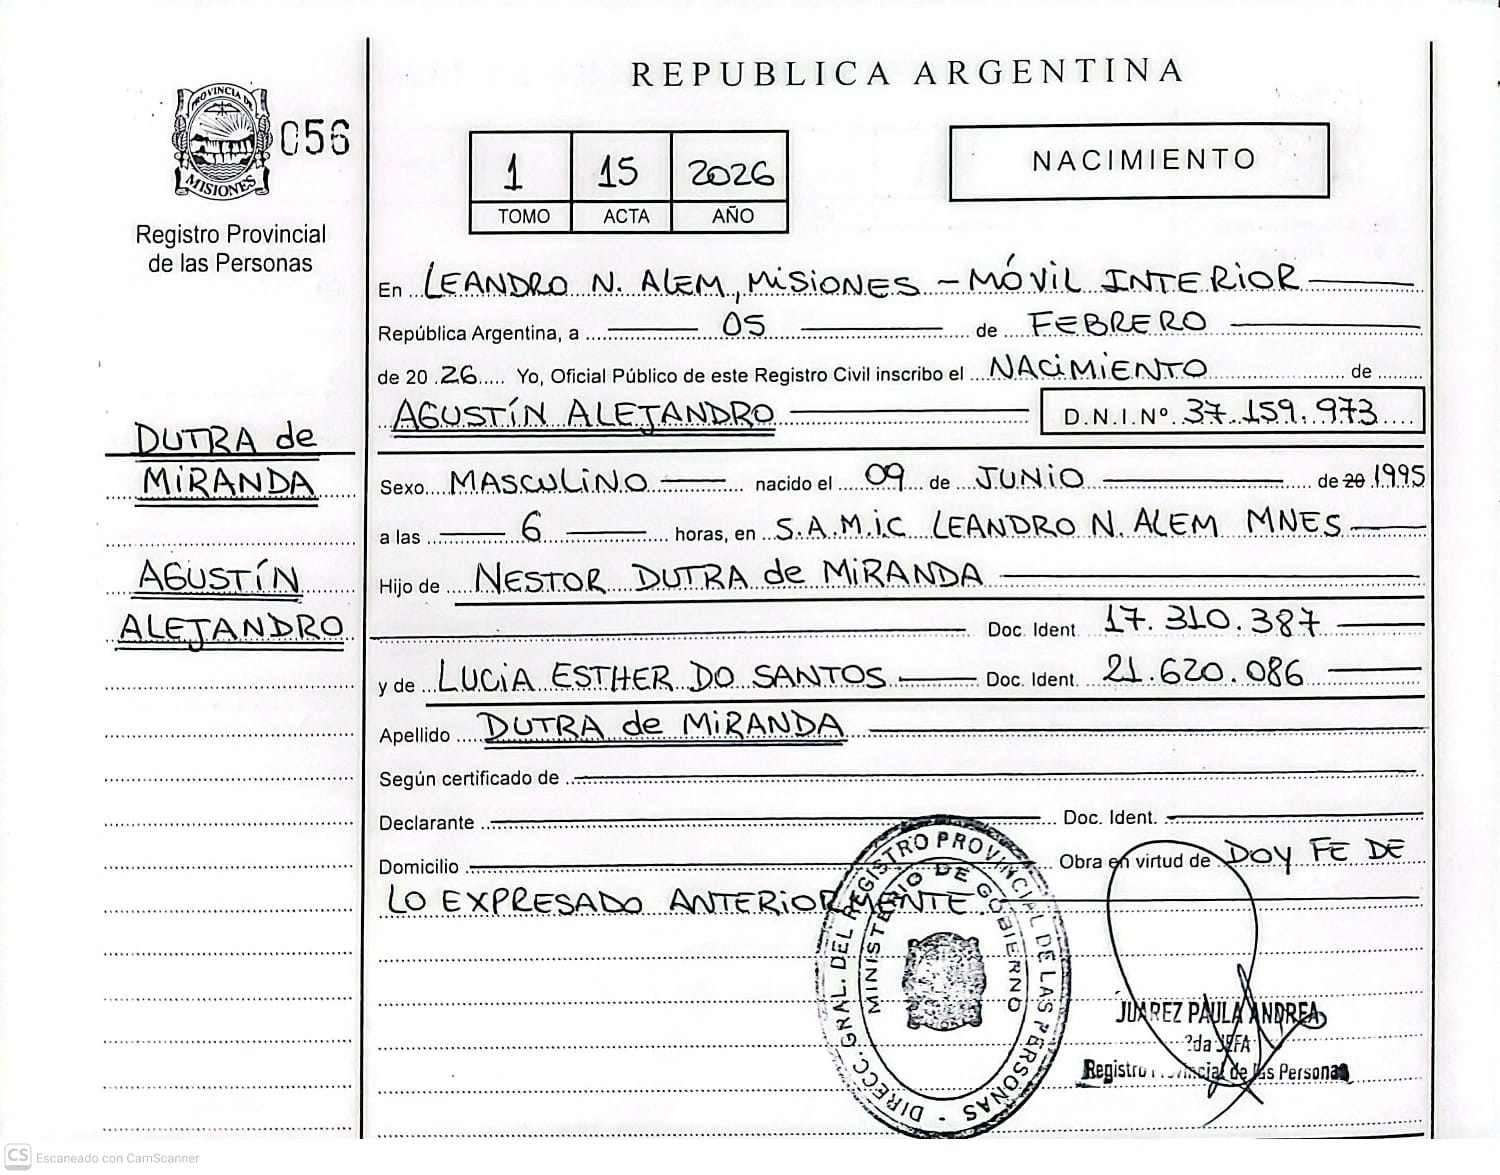 REPUBLICA ARGENTINA
PROVINCIA DE
MISIONES
056
Registro Provincial
de las Personas
1 15 2026
TOMO ACTA AÑO
NACIMIENTO
En LEANDRO N. ALEM, MISIONES - MÓVIL INTERIOR
República Argentina, a 05 de FEBRERO
de 20 26 Yo, Oficial Público de este Registro Civil inscribo el NACIMIENTO de
AGUSTÍN ALEJANDRO D.N.I.Nº. 37.159.973
DUTRA de
MIRANDA
AGUSTÍN
ALEJANDRO
Sexo MASCULINO nacido el 09 de JUNIO de 20 1995
a las 6 horas, en S.A.M.i.C LEANDRO N. ALEM MNES
Hijo de NESTOR DUTRA de MIRANDA
Doc. Ident. 17.310.387
y de LUCIA ESTHER DO SANTOS Doc. Ident. 21.620.086
Apellido DUTRA de MIRANDA
Según certificado de
Declarante Doc. Ident.
Domicilio Obra en virtud de DOY FE DE
LO EXPRESADO ANTERIORMENTE.
DIRECC. GRAL. DEL REGISTRO PROVINCIAL DE LAS PERSONAS -
MINISTERIO DE GOBIERNO
JUAREZ PAULA ANDREA
2da JEFA
Registro Provincial de las Personas
CS Escaneado con CamScanner